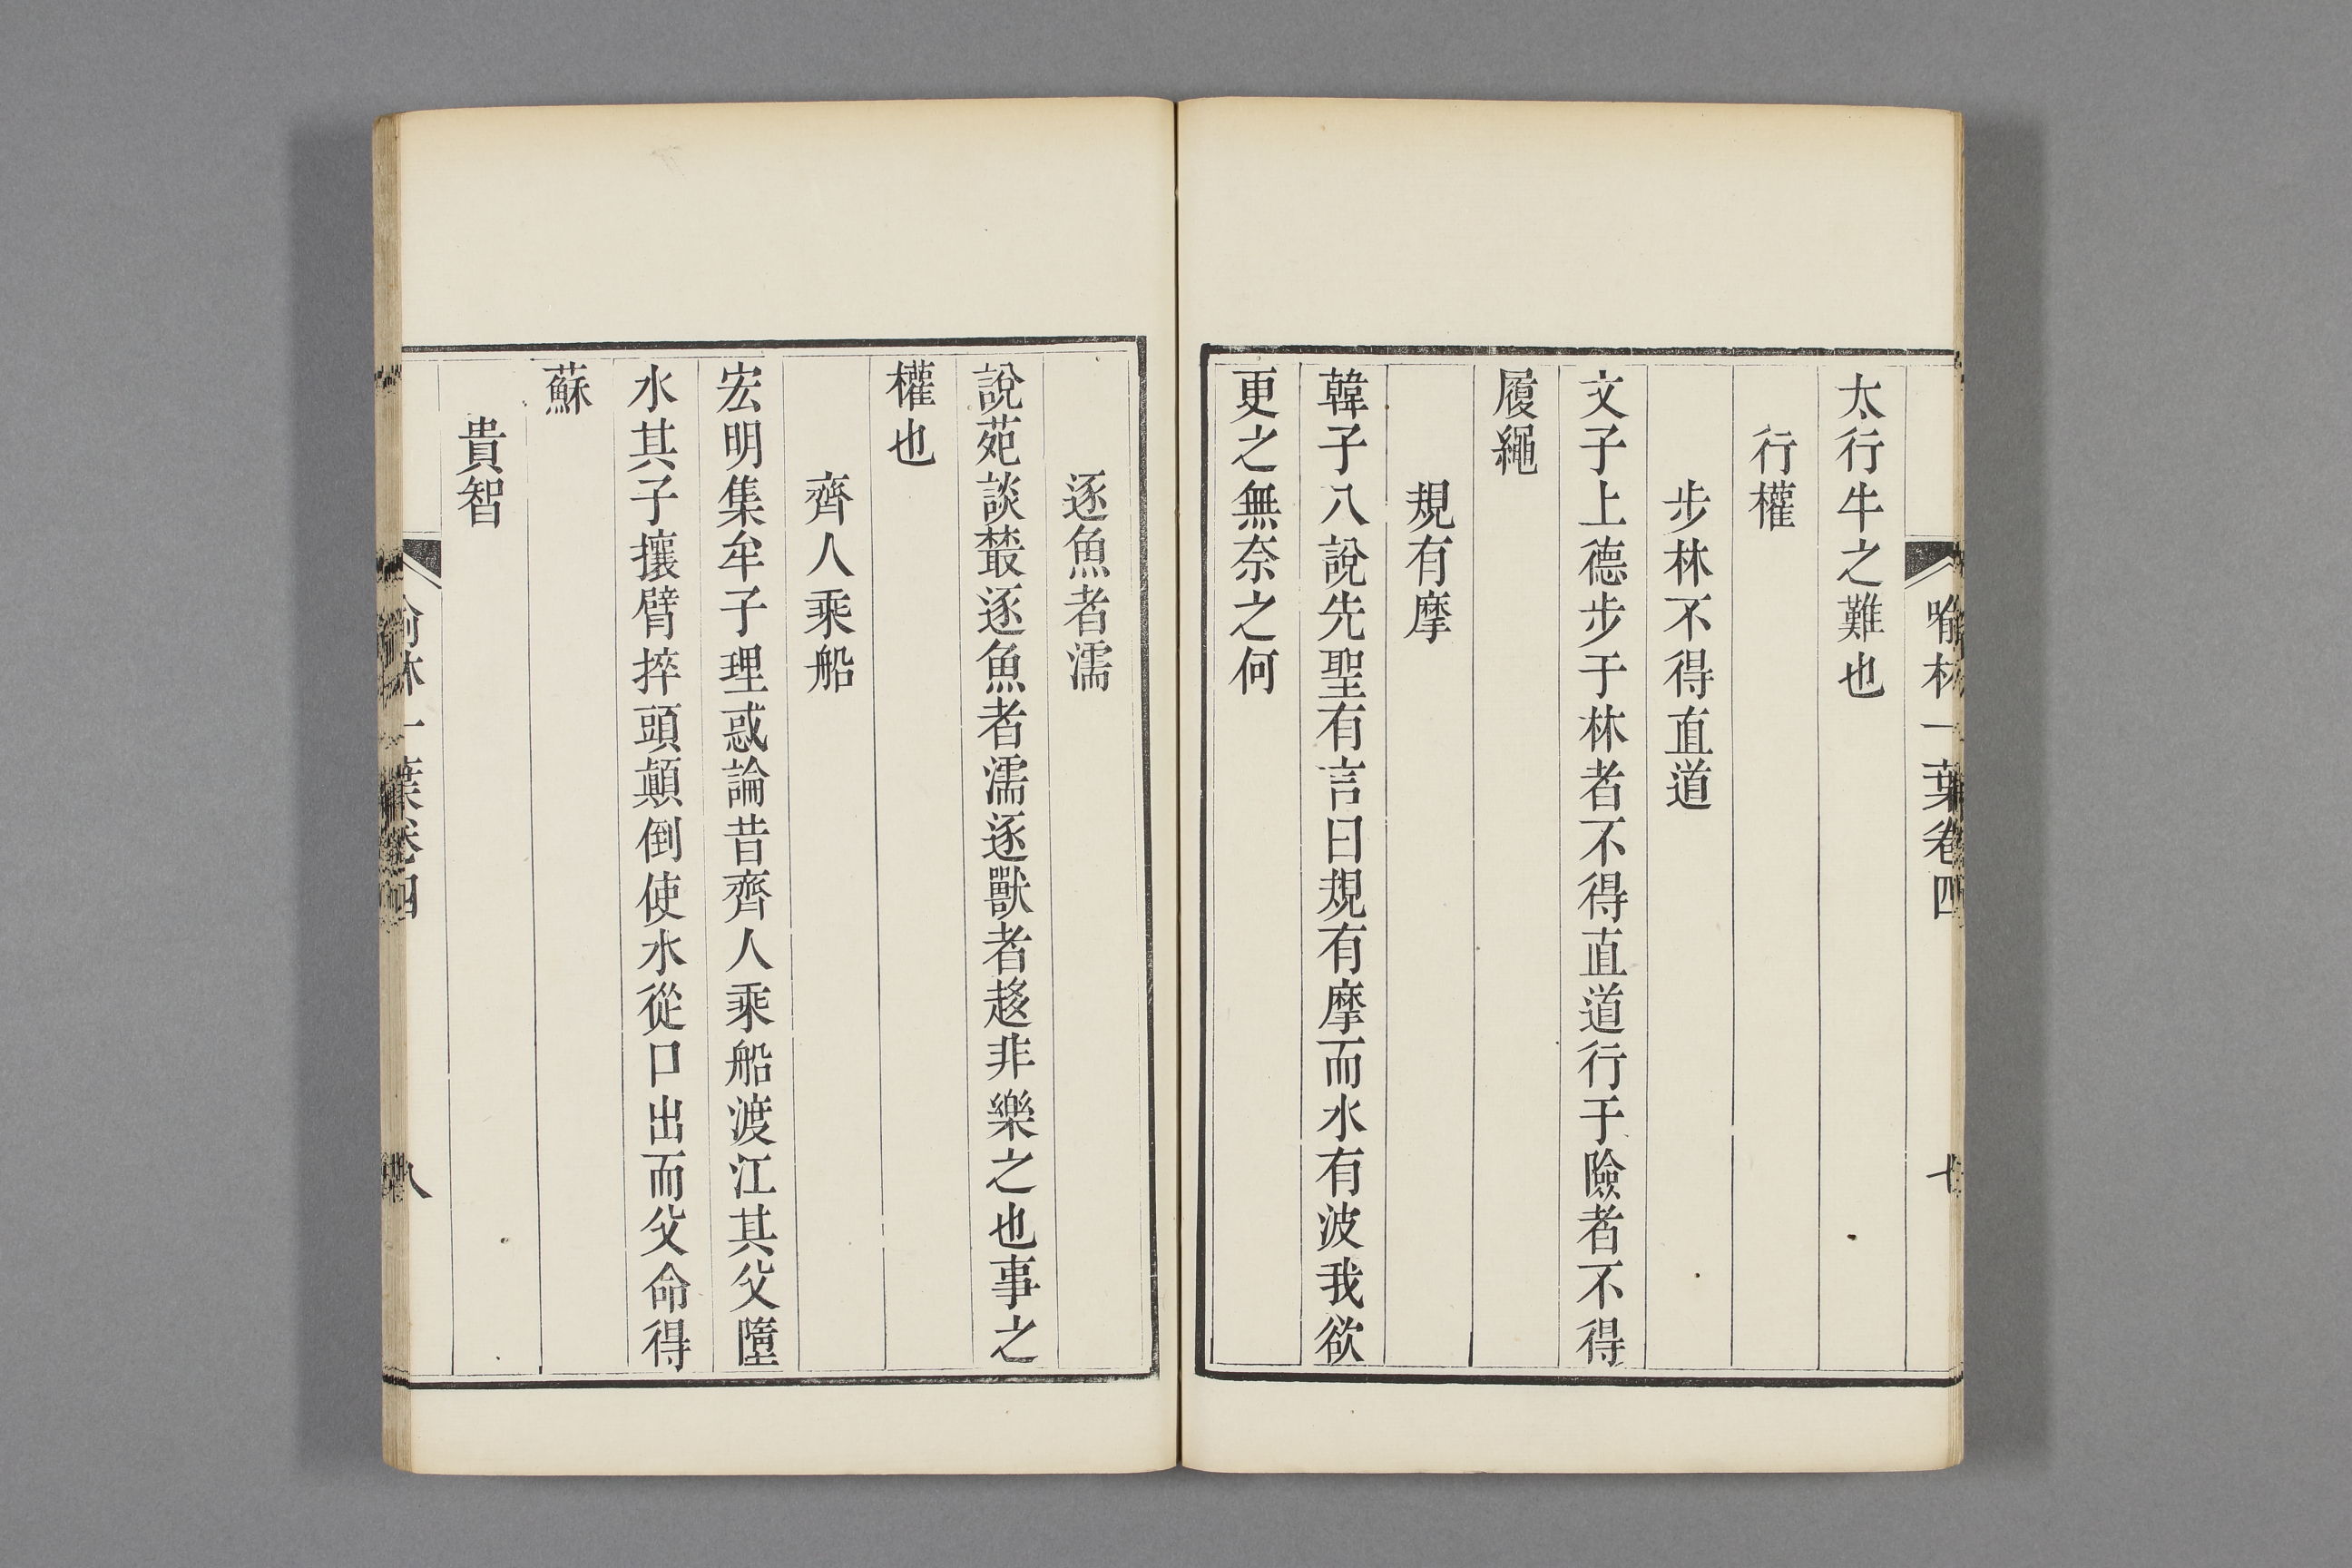 喻林一葉卷四
七
太行牛之難也
行權
步林不得直道
文子上德步于林者不得直道行于險者不得
履繩
規有摩
韓子八說先聖有言曰規有摩而水有波我欲
更之無奈之何
逐魚者濡
說苑談藂逐魚者濡逐獸者趍非樂之也事之
權也
齊人乘船
宏明集牟子理惑論昔齊人乘船渡江其父墮
水其子攘臂捽頭顛倒使水從口出而父命得
蘇
貴智
喻林一葉卷四
八